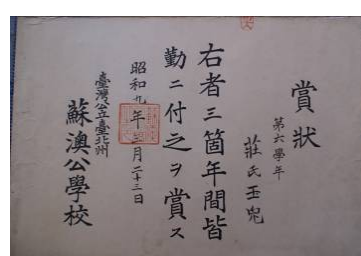 賞狀
第六學年
莊氏玉兜
右者三箇年間皆
勤ニ付之ヲ賞ス
昭和九年三月二十三日
臺灣公立臺北州
蘇澳公學校